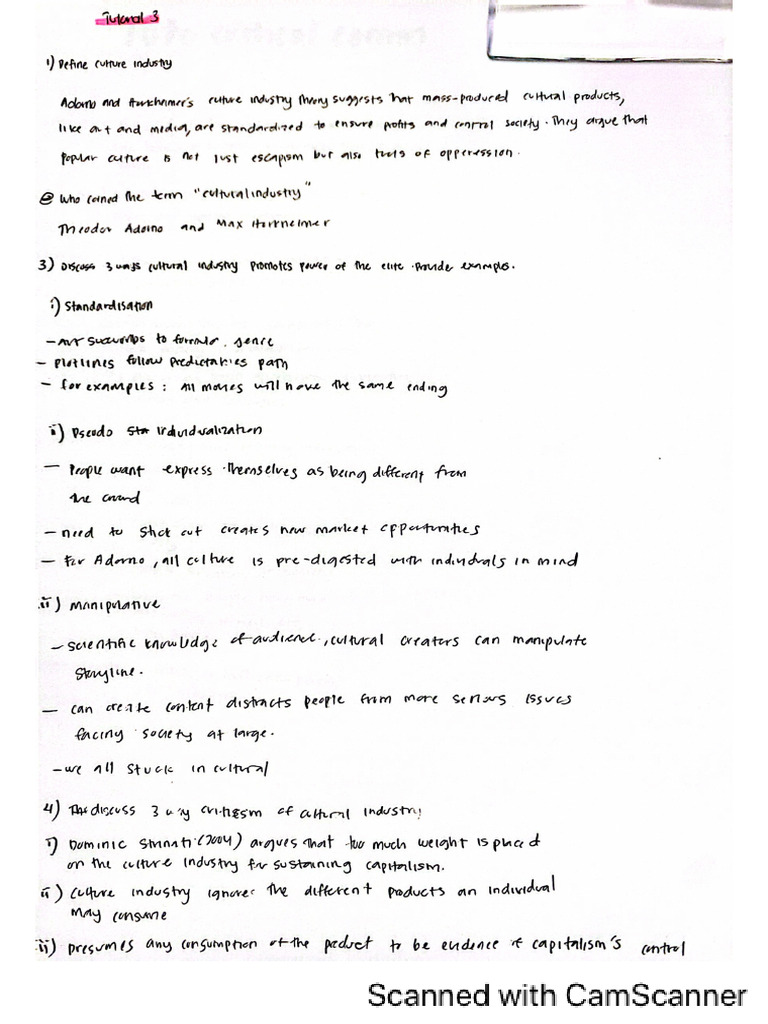 Tutorial 3
1) Define culture industry
Adorno and Horkheimer's culture industry theory suggests that mass-produced cultural products,
like art and media, are standardized to ensure profits and control society. They argue that
popular culture is not just escapism but also tools of opperession.
2 Who coined the term "cultural industry"
Theodor Adorno and Max Horkheimer
3) Discuss 3 ways cultural industry promotes power of the elite. Provide examples.
i) Standardisation
- Art succumbs to formula.
- Plotlines follow predictabies path
- for examples : All movies will have the same ending
ii) Pseudo individualization
- People want express themselves as being different from
the crowd
- need to creates new market opportunities
- For Adorno, all culture is pre-digested with individuals in mind
iii) Manipulative
- Scientific knowledge of audience, cultural creators can manipulate
storyline.
- can create content distracts people from more serious issues
facing society at large.
- we all stuck in cultural
4) discuss 3 critisism of cultural industry
i) Dominic Strinati (2004) argues that too much weight is placed
on the culture industry for sustaining capitalism.
ii) Culture industry ignores the different products an individual
may consume
iii) presumes any consumption of the product to be evidence of capitalism's control
Scanned with CamScanner